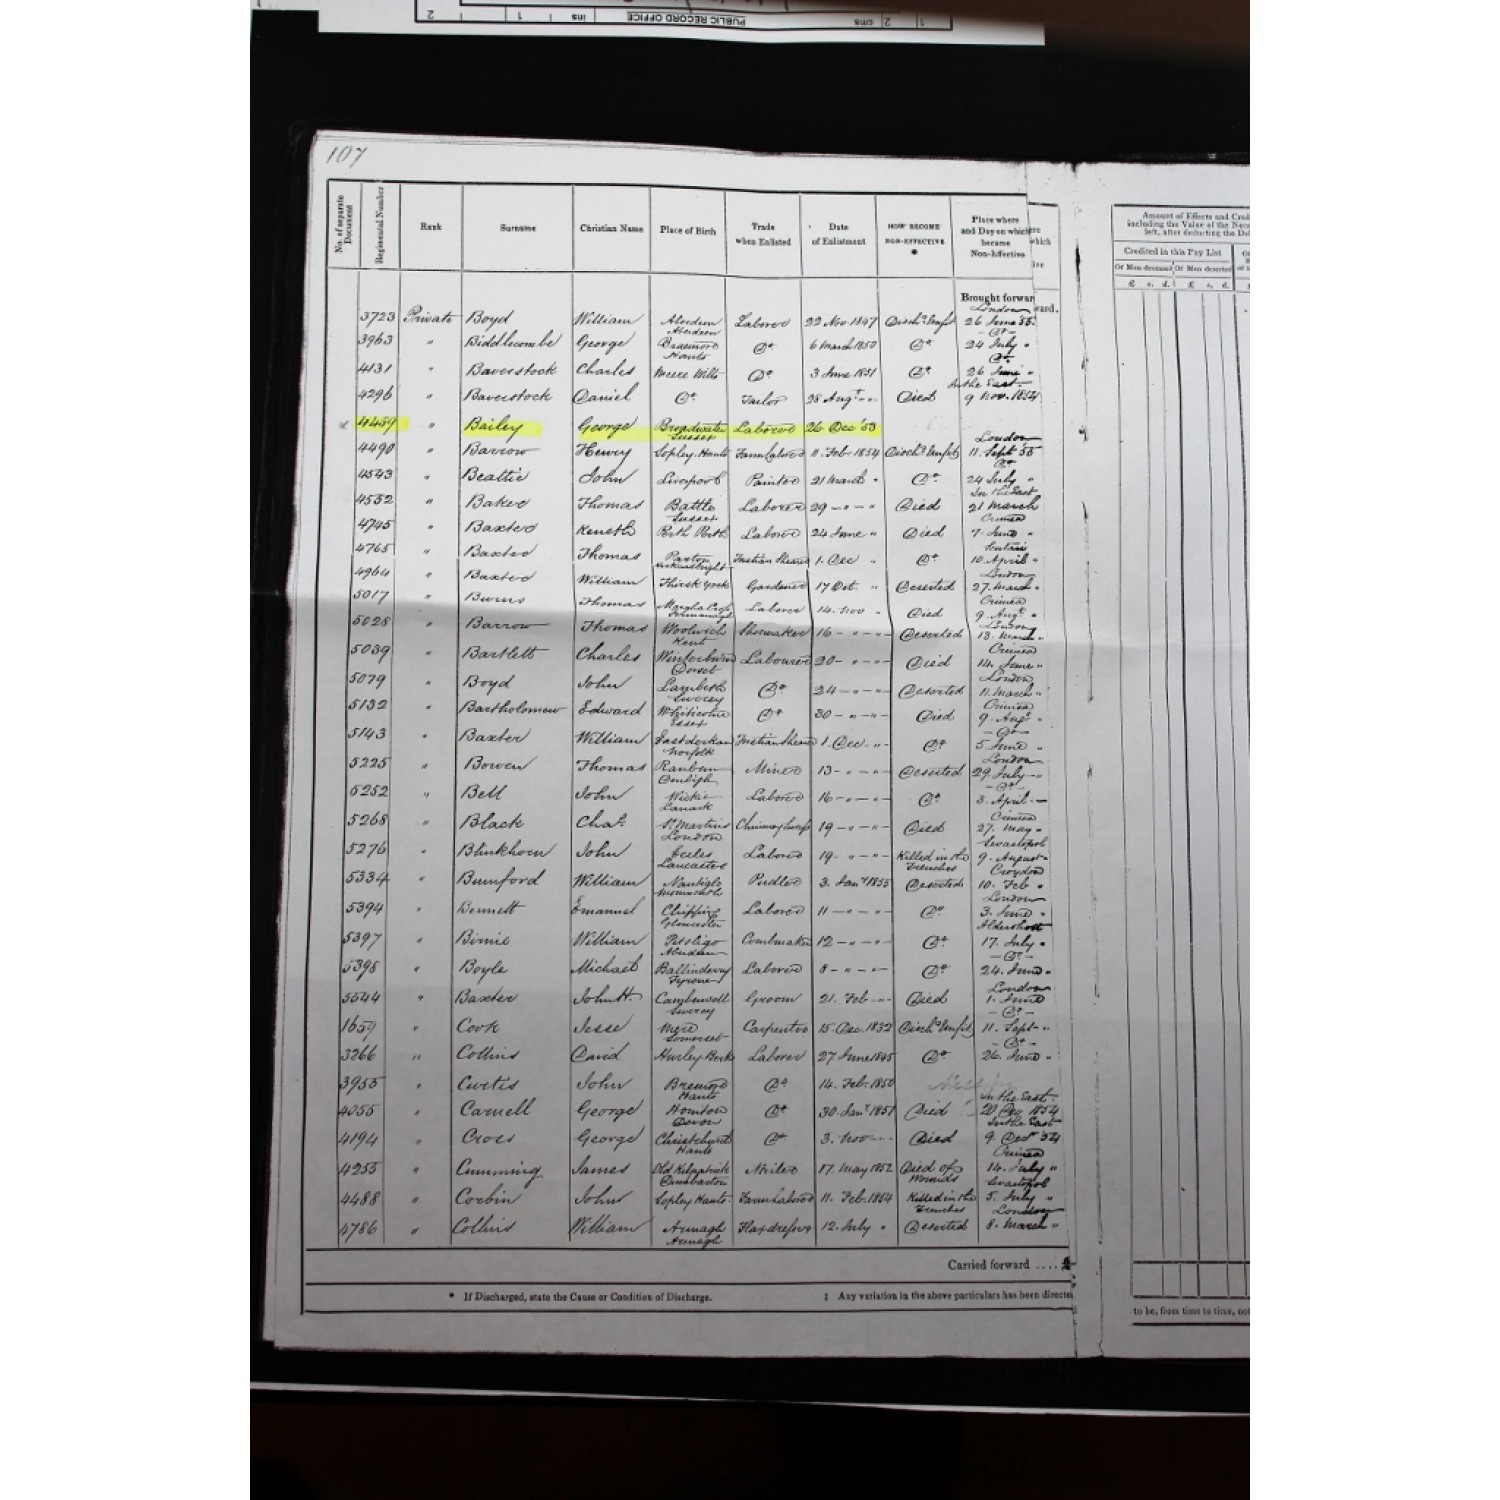 2 1 ins PUBLIC RECORD OFFICE cms 2 1
107
No. of separate Document
Regimental Number
Rank
Surname
Christian Name
Place of Birth
Trade when Enlisted
Date of Enlistment
HOW BECOME NON-EFFECTIVE *
Place where and Day on which became Non-Effective
Amount of Effects and
including the Value of the
left, after deducting the
Credited in this Pay List
Or Men deceased Or Men deserted
£ s. d. £ s. d. £
Brought forward
3723 Private Boyd William Aberdeen Aberdeen Laborer 22 Nov. 1847 Disch.d Unfit London 26 June '55
3963 " Biddlecombe George Hants Do 6 March 1850 Do Do 24 July "
4131 " Baverstock Charles Meere Wilts Do 3 June 1851 Do Do 26 June "
4296 " Baverstock Daniel Do Tailor 28 Augt " Died In the East 9 Nov. 1854
4459 " Bailey George Broadwater Sussex Laborer 26 Dec '53
4490 " Barrow Henry Sopley Hants Farm Laborer 11 Feb. 1854 Disch.d Unfit London 11 Sept '55
4543 " Beattie John Liverpool Painter 21 March " Do Do 24 July "
4552 " Baker Thomas Battle Sussex Laborer 29 " " Died In the East 21 March
4745 " Baxter Keneth Perth Perth Laborer 24 June " Died Crimea 7 June "
4765 " Baxter Thomas 1 Dec " Do Scutari 10 April "
4964 " Baxter William Thirsk York Gardener 17 Oct. " Deserted London 27 March "
5017 " Burns Thomas Fermanagh Laborer 14 Nov " Died Crimea 9 Augt "
5028 " Barrow Thomas Woolwich Kent Shoemaker 16 " " Deserted London 13 March "
5039 " Bartlett Charles Winterborn Dorset Labourer 20 " " Died Crimea 14 June "
5079 " Boyd John Lambeth Surrey Do 24 " " Deserted London 11 March "
5132 " Bartholomew Edward Essex Do 30 " " Died Crimea 9 Augt "
5143 " Baxter William Norfolk 1 Dec " Do Do 5 June "
5225 " Bowen Thomas Denbigh Miner 13 " " Deserted London 29 July "
5252 " Bell John Lanark Laborer 16 " " Do Do 3 April
5268 " Black Chas. St Martins London Chimney Sweep 19 " " Died Crimea 27 May "
5276 " Blinkhorn John Eccles Lancaster Laborer 19 " " Killed in the Trenches Sevastopol 9 August "
5334 " Bumford William Nantiglo Monmouth Pudler 3 Jany 1855 Deserted Croydon 10 Feb "
5394 " Bennett Emanuel Chipping Gloucester Laborer 11 " " Do London 3 June "
5397 " Birnie William Pitsligo Aberdeen Combmaker 12 " " Do Aldershott 17 July "
5398 " Boyle Michael Ballinderry Tyrone Laborer 8 " " Do Do 24 June "
5544 " Baxter John H. Camberwell Surrey Groom 21 Feb " Died London 1 June
1659 " Cook Jesse Mere Somerset Carpenter 15 Dec. 1832 Disch.d Unfit Do 11 Sept "
3266 " Collins David Hurley Berks Laborer 27 June 1845 Do Do 26 June "
3955 " Curtis John Hants Do 14 Feb. 1850
4055 " Carnell George Honiton Devon Do 30 Jany 1851 Died In the East 20 Dec 1854
4194 " Cross George Christchurch Hants Do 3 Nov " Died In the East 9 Decr '54
4255 " Cumming James Old Kilpatrick Dumbarton 17 May 1852 Died of Wounds Crimea 14 July "
4488 " Corbin John Sopley Hants Farm Laborer 11 Feb. 1854 Killed in the Trenches Sevastopol 5 July "
4786 " Collins William Armagh Armagh Flaxdresser 12 July " Deserted London 8 March "
Carried forward ....
* If Discharged, state the Cause or Condition of Discharge.
‡ Any variation in the above particulars has been directe
to be, from time to time, not